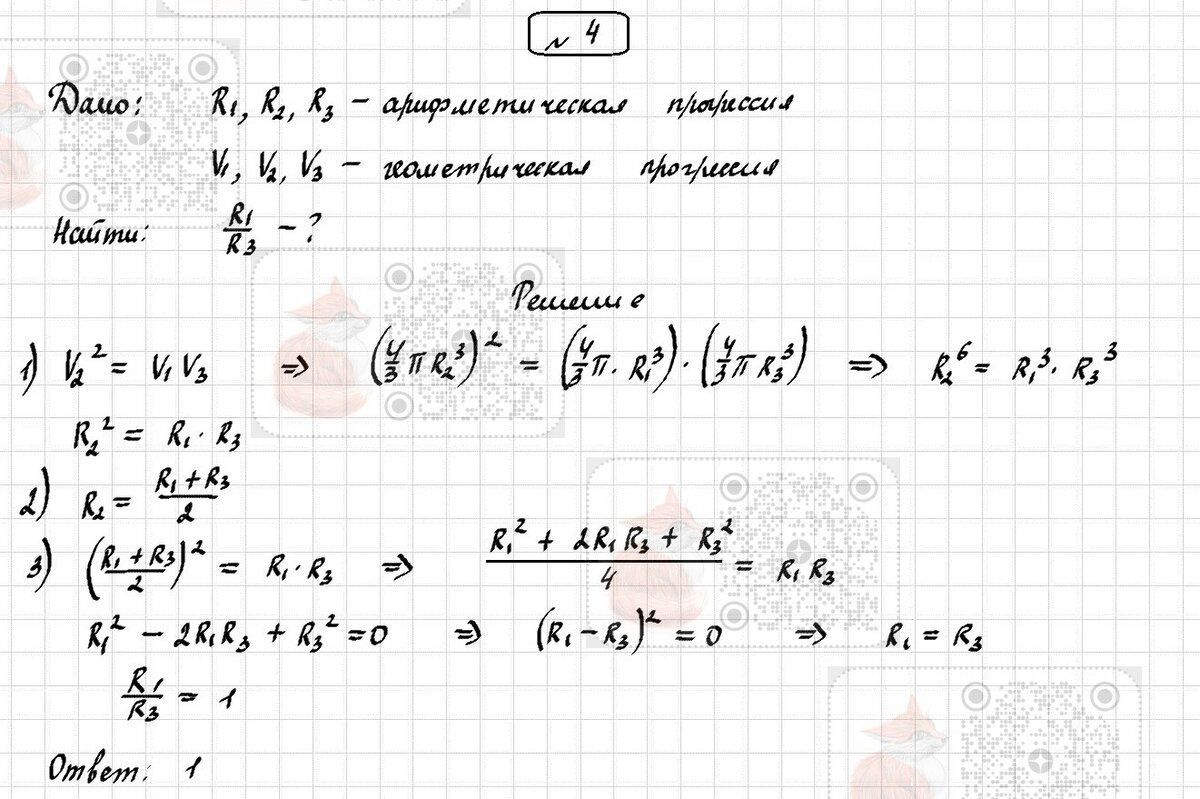 № 4
Дано: R₁, R₂, R₃ – арифметическая прогрессия
V₁, V₂, V₃ – геометрическая прогрессия
Найти: R₁/R₃ – ?
Решение
1) V₂² = V₁ V₃ => (4/3 π R₂³)² = (4/3 π · R₁³) · (4/3 π R₃³) => R₂⁶ = R₁³ · R₃³
R₂² = R₁ · R₃
2) R₂ = (R₁ + R₃)/2
3) ((R₁ + R₃)/2)² = R₁ · R₃ => (R₁² + 2R₁R₃ + R₃²)/4 = R₁ R₃
R₁² – 2R₁R₃ + R₃² = 0 => (R₁ – R₃)² = 0 => R₁ = R₃
R₁/R₃ = 1
Ответ: 1